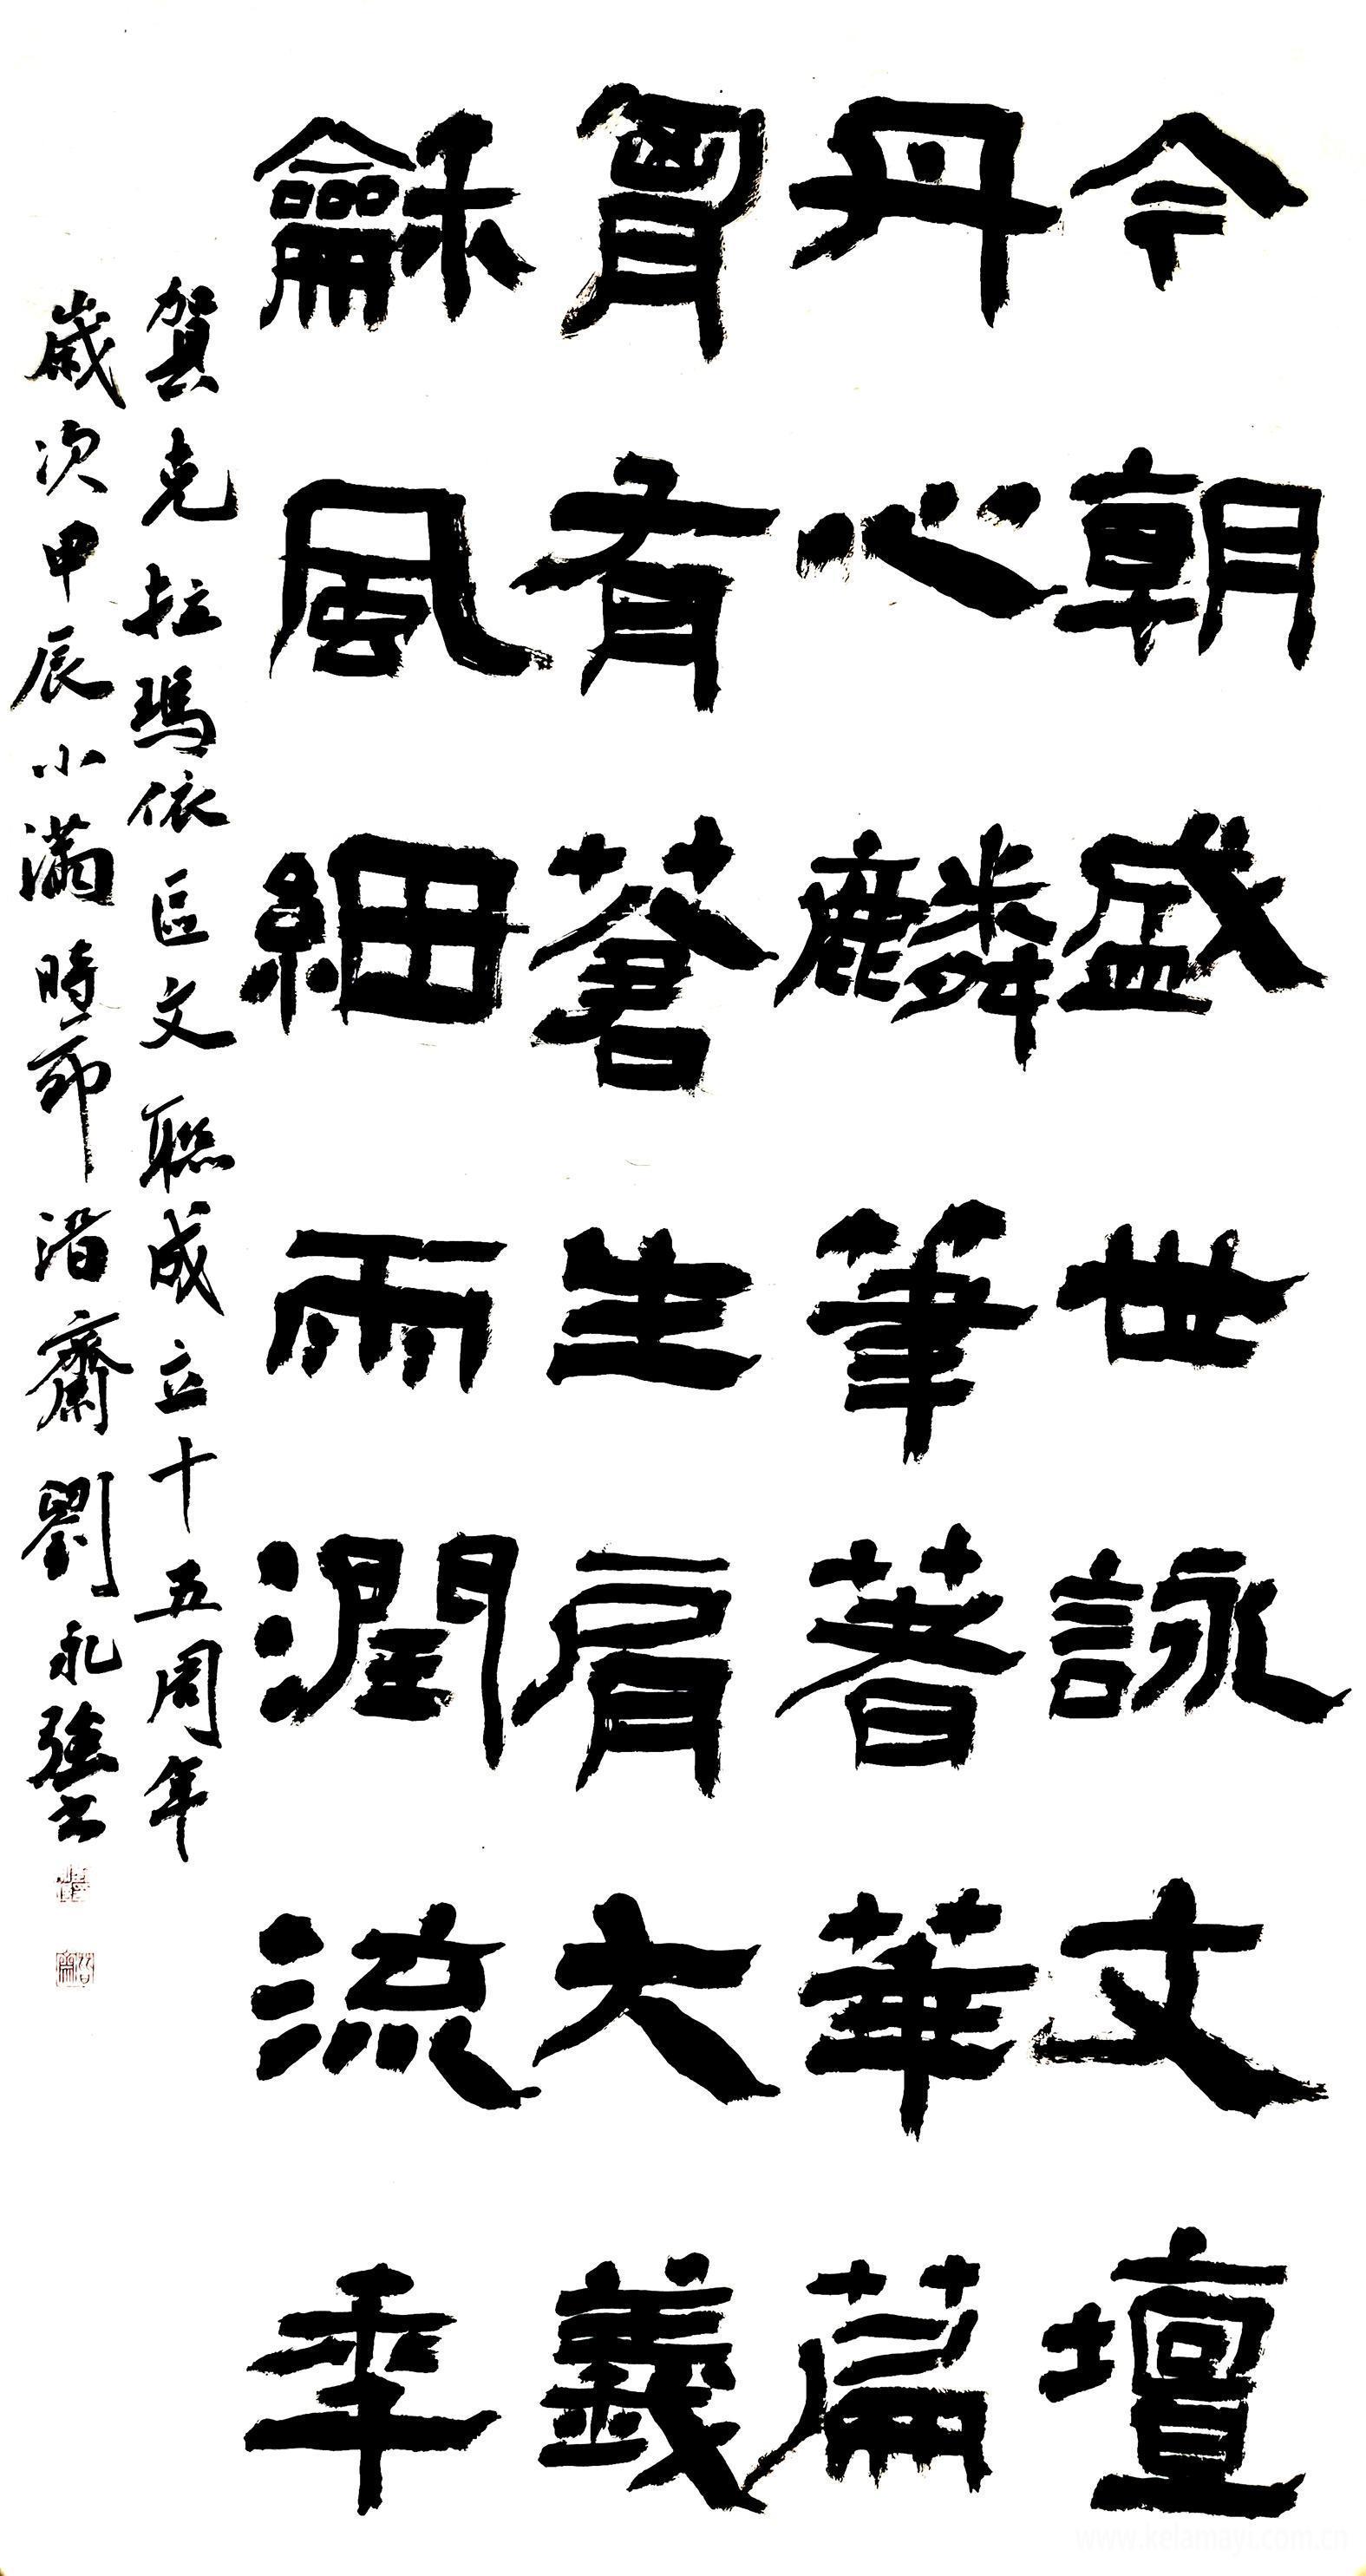 今朝盛世詠文壇
丹心麟筆著華篇
胷有蒼生肩大義
龢風細雨潤流年
賀克拉瑪依區文聯成立十五周年
歲次甲辰小滿時節 齋劉永強書
www.kelamayi.com.cn